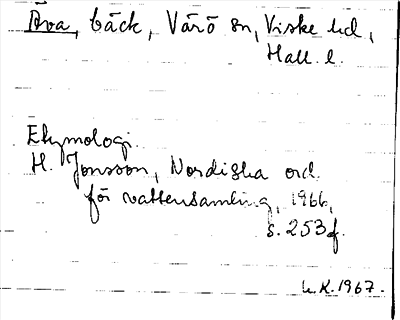 Åva, bäck, Värö sn, Viske hd,
Hall. l.
Etymologi
H. Jonsson, Nordiska ord
för vattensamling, 1966,
s. 253 f.
K. 1967.